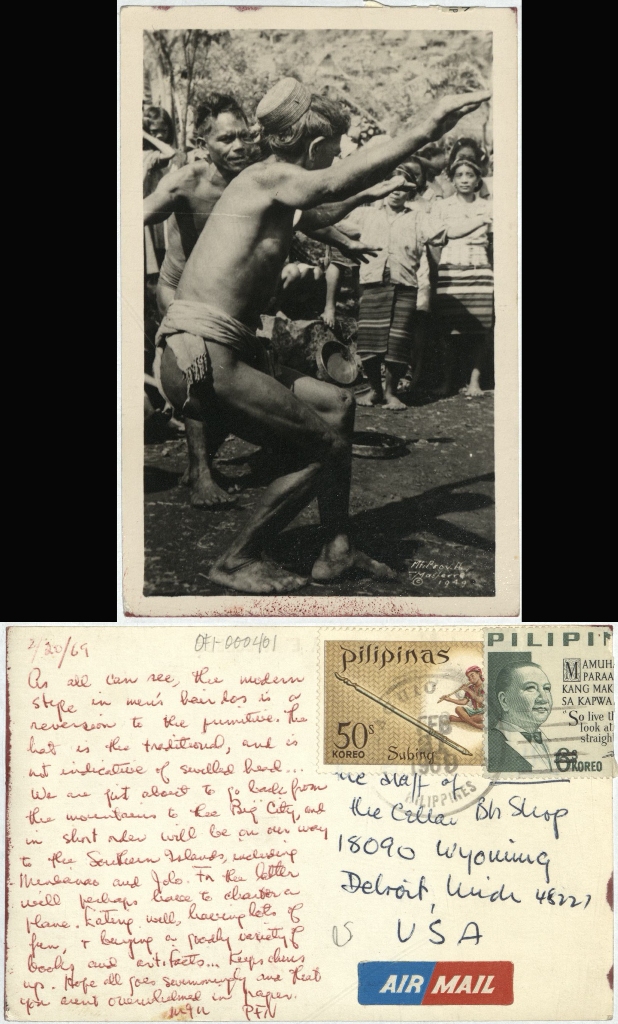 Mt. Prov. P.I.
©
2/20/69
OFI-000401
As all can see, the modern
style in men's hairdos is a
reversion to the primitive. The
hat is the traditional, and is
not indicative of swelled head...
We are just about to go back from
the mountains to the Big City, and
in short order will be on our way
to the Southern Islands, including
Mindanao and Jolo. For the latter
will perhaps have to charter a
plane. Eating well, having lots of
fun, + buying a goodly variety of
books and artifacts... Keep chins
up. Hope all goes swimmingly and that
you aren't overwhelmed in paper.
pilipinas
50s
KOREO
Subing
FEB
PILIPPINES
PILIPI
MAMUH
PARAA
KANG MAK
SA KAPWA
"So live th
look at
straigh
6s KOREO
The Staff of
the Cellar Bk Shop
18090 Wyoming
Detroit, Mich 48221
USA
AIR MAIL